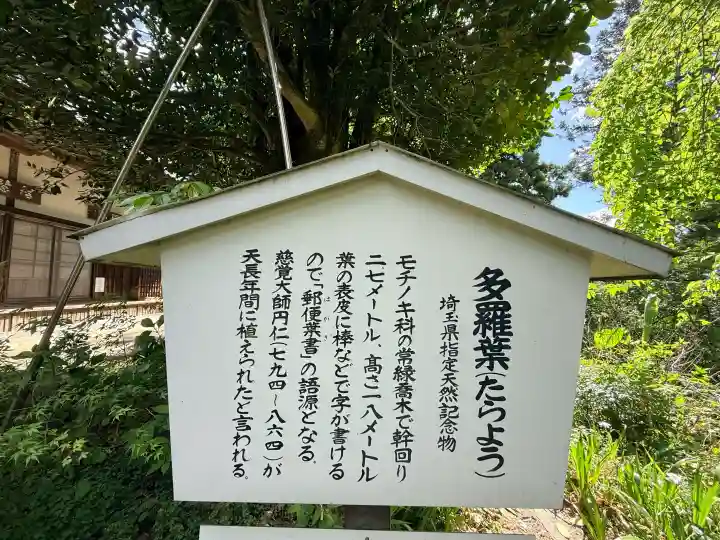 多羅葉(たらよう)
埼玉県指定天然記念物
モチノキ科の常緑喬木で幹回り
二.七メートル、高さ一八メートル
葉の表皮に棒などで字が書ける
ので「郵便葉書」の語源となる.
はがき
慈覚大師円仁(七九四~八六四)が
天長年間に植えられたと言われる。